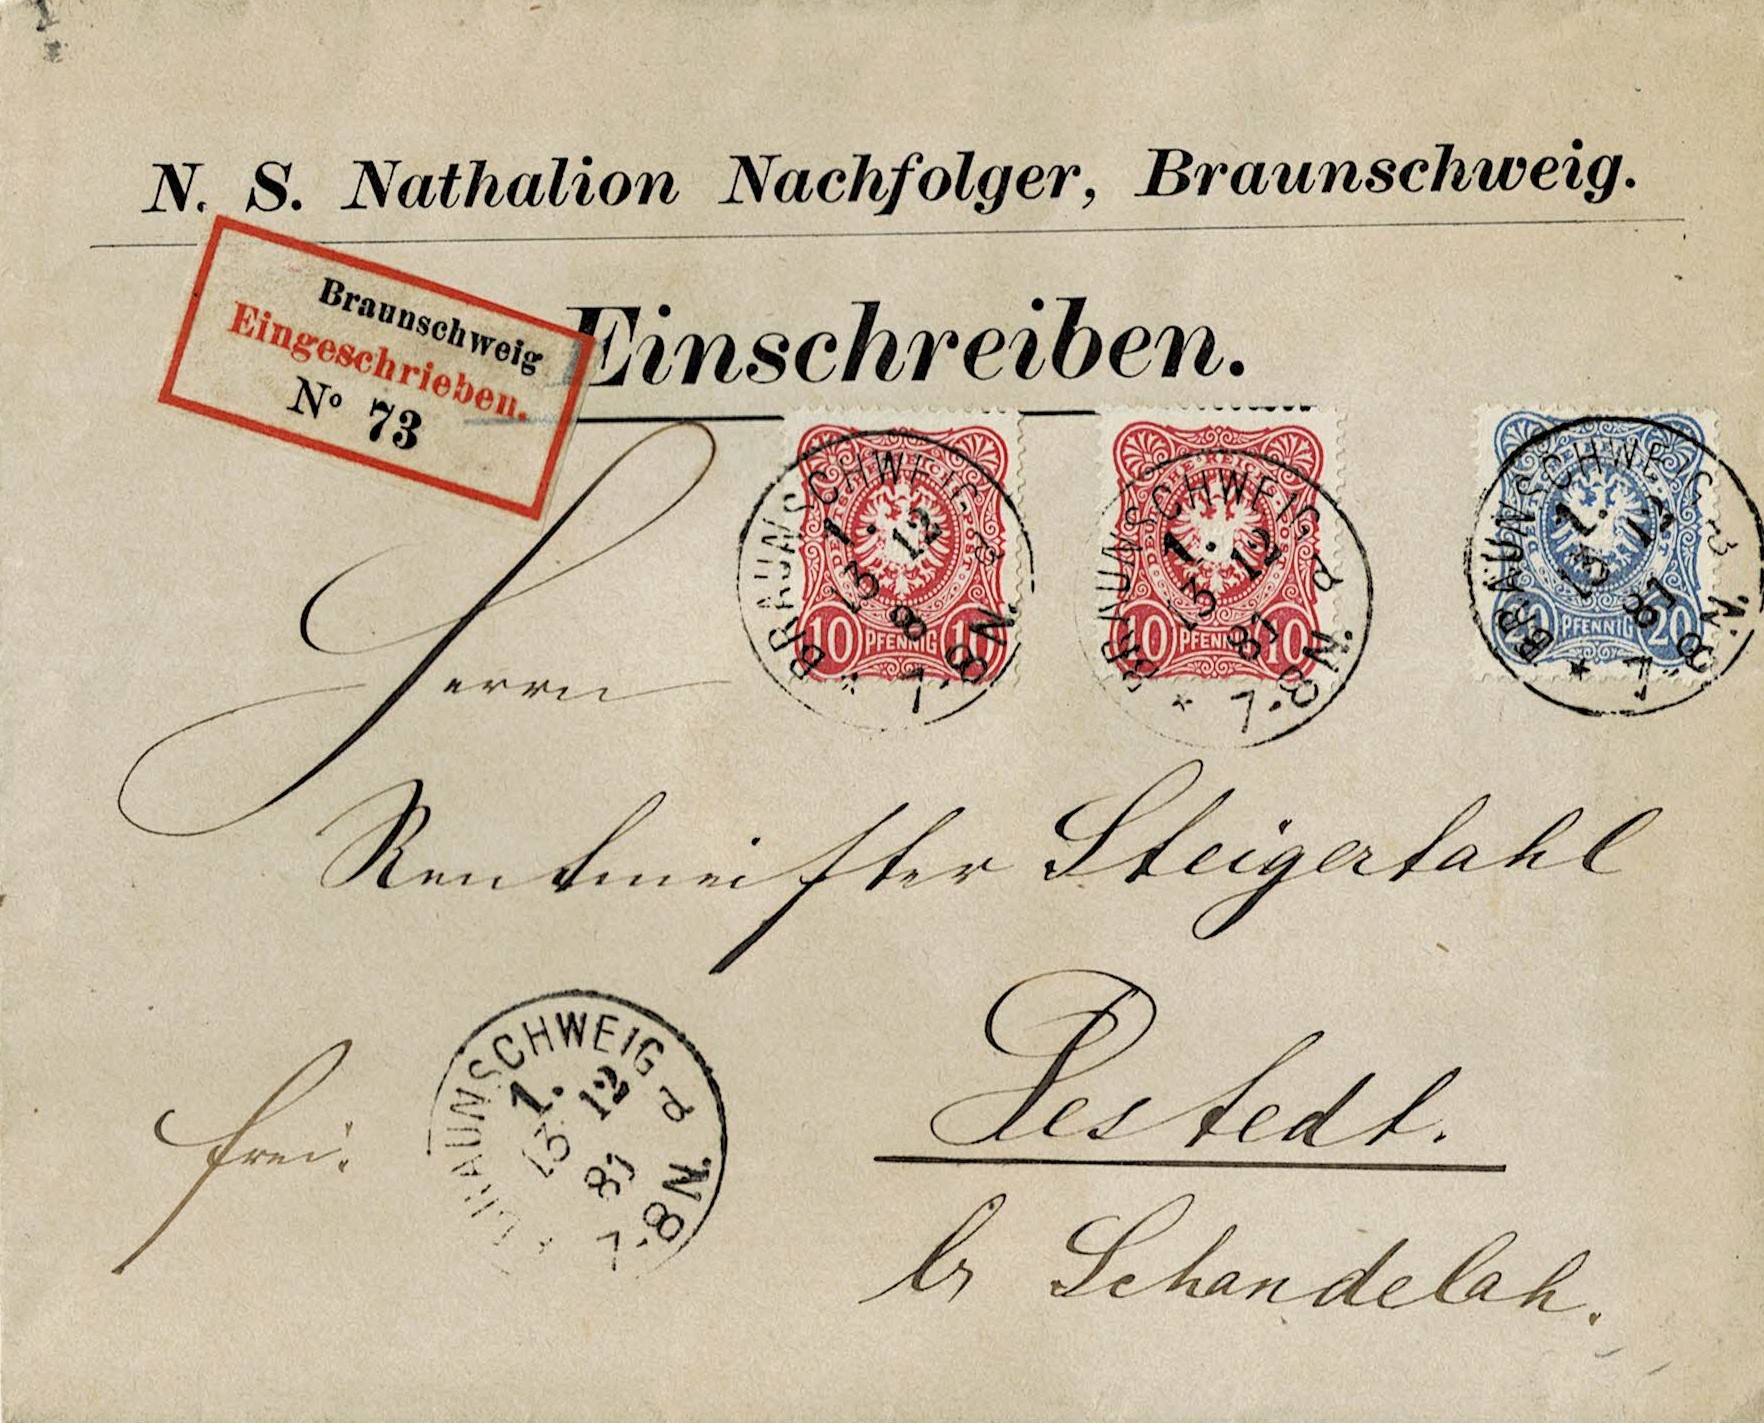 N. S. Nathalion Nachfolger, Braunschweig.
Einschreiben.
Braunschweig
Eingeschrieben.
No 73
BRAUNSCHWEIG d
1.
13 12
8
7-8N.
10 PFENNIG 10
BRAUNSCHWEIG d
1.
13 12
87
7-8N.
10 PFENNIG 10
BRAUNSCHWEIG
1.
13 12
87
7-8N.
20 PFENNIG 20
Herrn
Rentmeister Steigertahl
Destedt.
br Schandelah.
frei.
BRAUNSCHWEIG d
1.
13 12
87
7-8N.